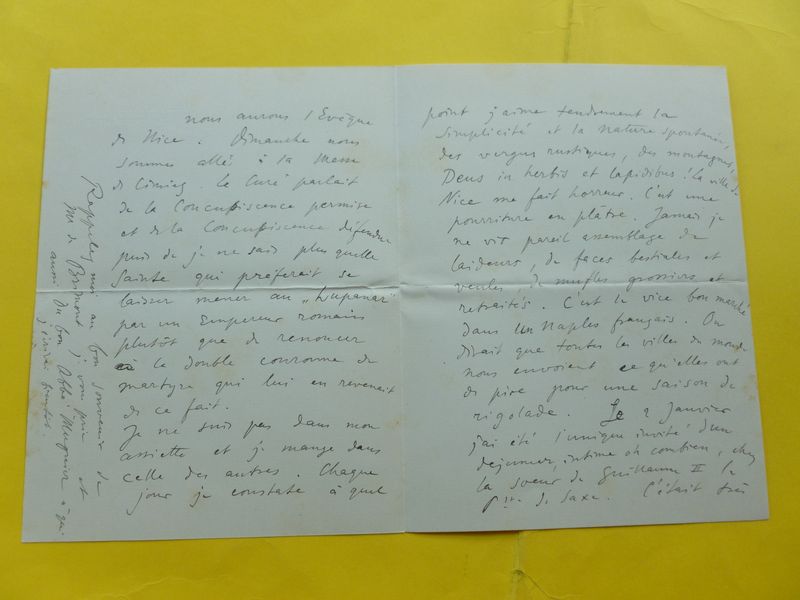 nous aurons l'Evêque
de Nice. Dimanche nous
sommes allé à la Messe
de Cimiez. Le Curé parlait
de la Concupiscence permise
et de la Concupiscence défendue
puis de je ne sais plus quelle
Sainte qui préférait se
laisser mener au "Lupanar"
par un Empereur romain
plutôt que de renoncer
à la double couronne de
martyre qui lui en revenait
de ce fait.
Je ne suis pas dans mon
assiette et je mange dans
celle des autres. Chaque
jour je constate à quel
Rappelez moi au bon souvenir de
Me de Brimont je vous prie et
aussi du bon Abbé Mugnier à qui
j'écrirai bientôt.
point j'aime tendrement la
simplicité et la nature spontanée,
des vergers rustiques, des montagnes,
Deus in herbis et lapidibus! la ville de
Nice me fait horreur. C'est une
pourriture en plâtre. Jamais je
ne vis pareil assemblage de
laideurs, de faces bestiales et
veules, de mufles grossiers et
retraités. C'est le vice bon marché
dans un Naples français. On
dirait que toutes les villes du monde
nous envoient ce qu'elles ont
de pire pour une saison de
rigolade. Le 2 Janvier
j'ai été l'unique invité d'un
dejeuner, intime oh combien, chez
la soeur de Guillaume II la
Psse de Saxe. C'était très